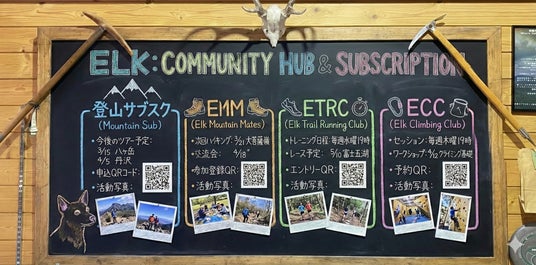 ELK: COMMUNITY HUB & SUBSCRIPTION
登山サブスク
(Mountain Sub)
・今後のツアー予定:
3/15 八ヶ岳
4/5 丹沢
・申込QRコード:
・活動写真:
EMM
(Elk Mountain Mates)
・次回ハイキング:
・交流会: 4/18
・参加登録QR:
・活動写真:
ETRC
(Elk Trail Running Club)
・トレーニング日程: 毎週水曜19時
・レース予定: 5/10 富士五湖
・エントリーQR:
・活動写真:
ECC
(Elk Climbing Club)
・セッション: 毎週木曜19時
・ワークショップ: クライミング基礎
・予約QR:
・活動写真: